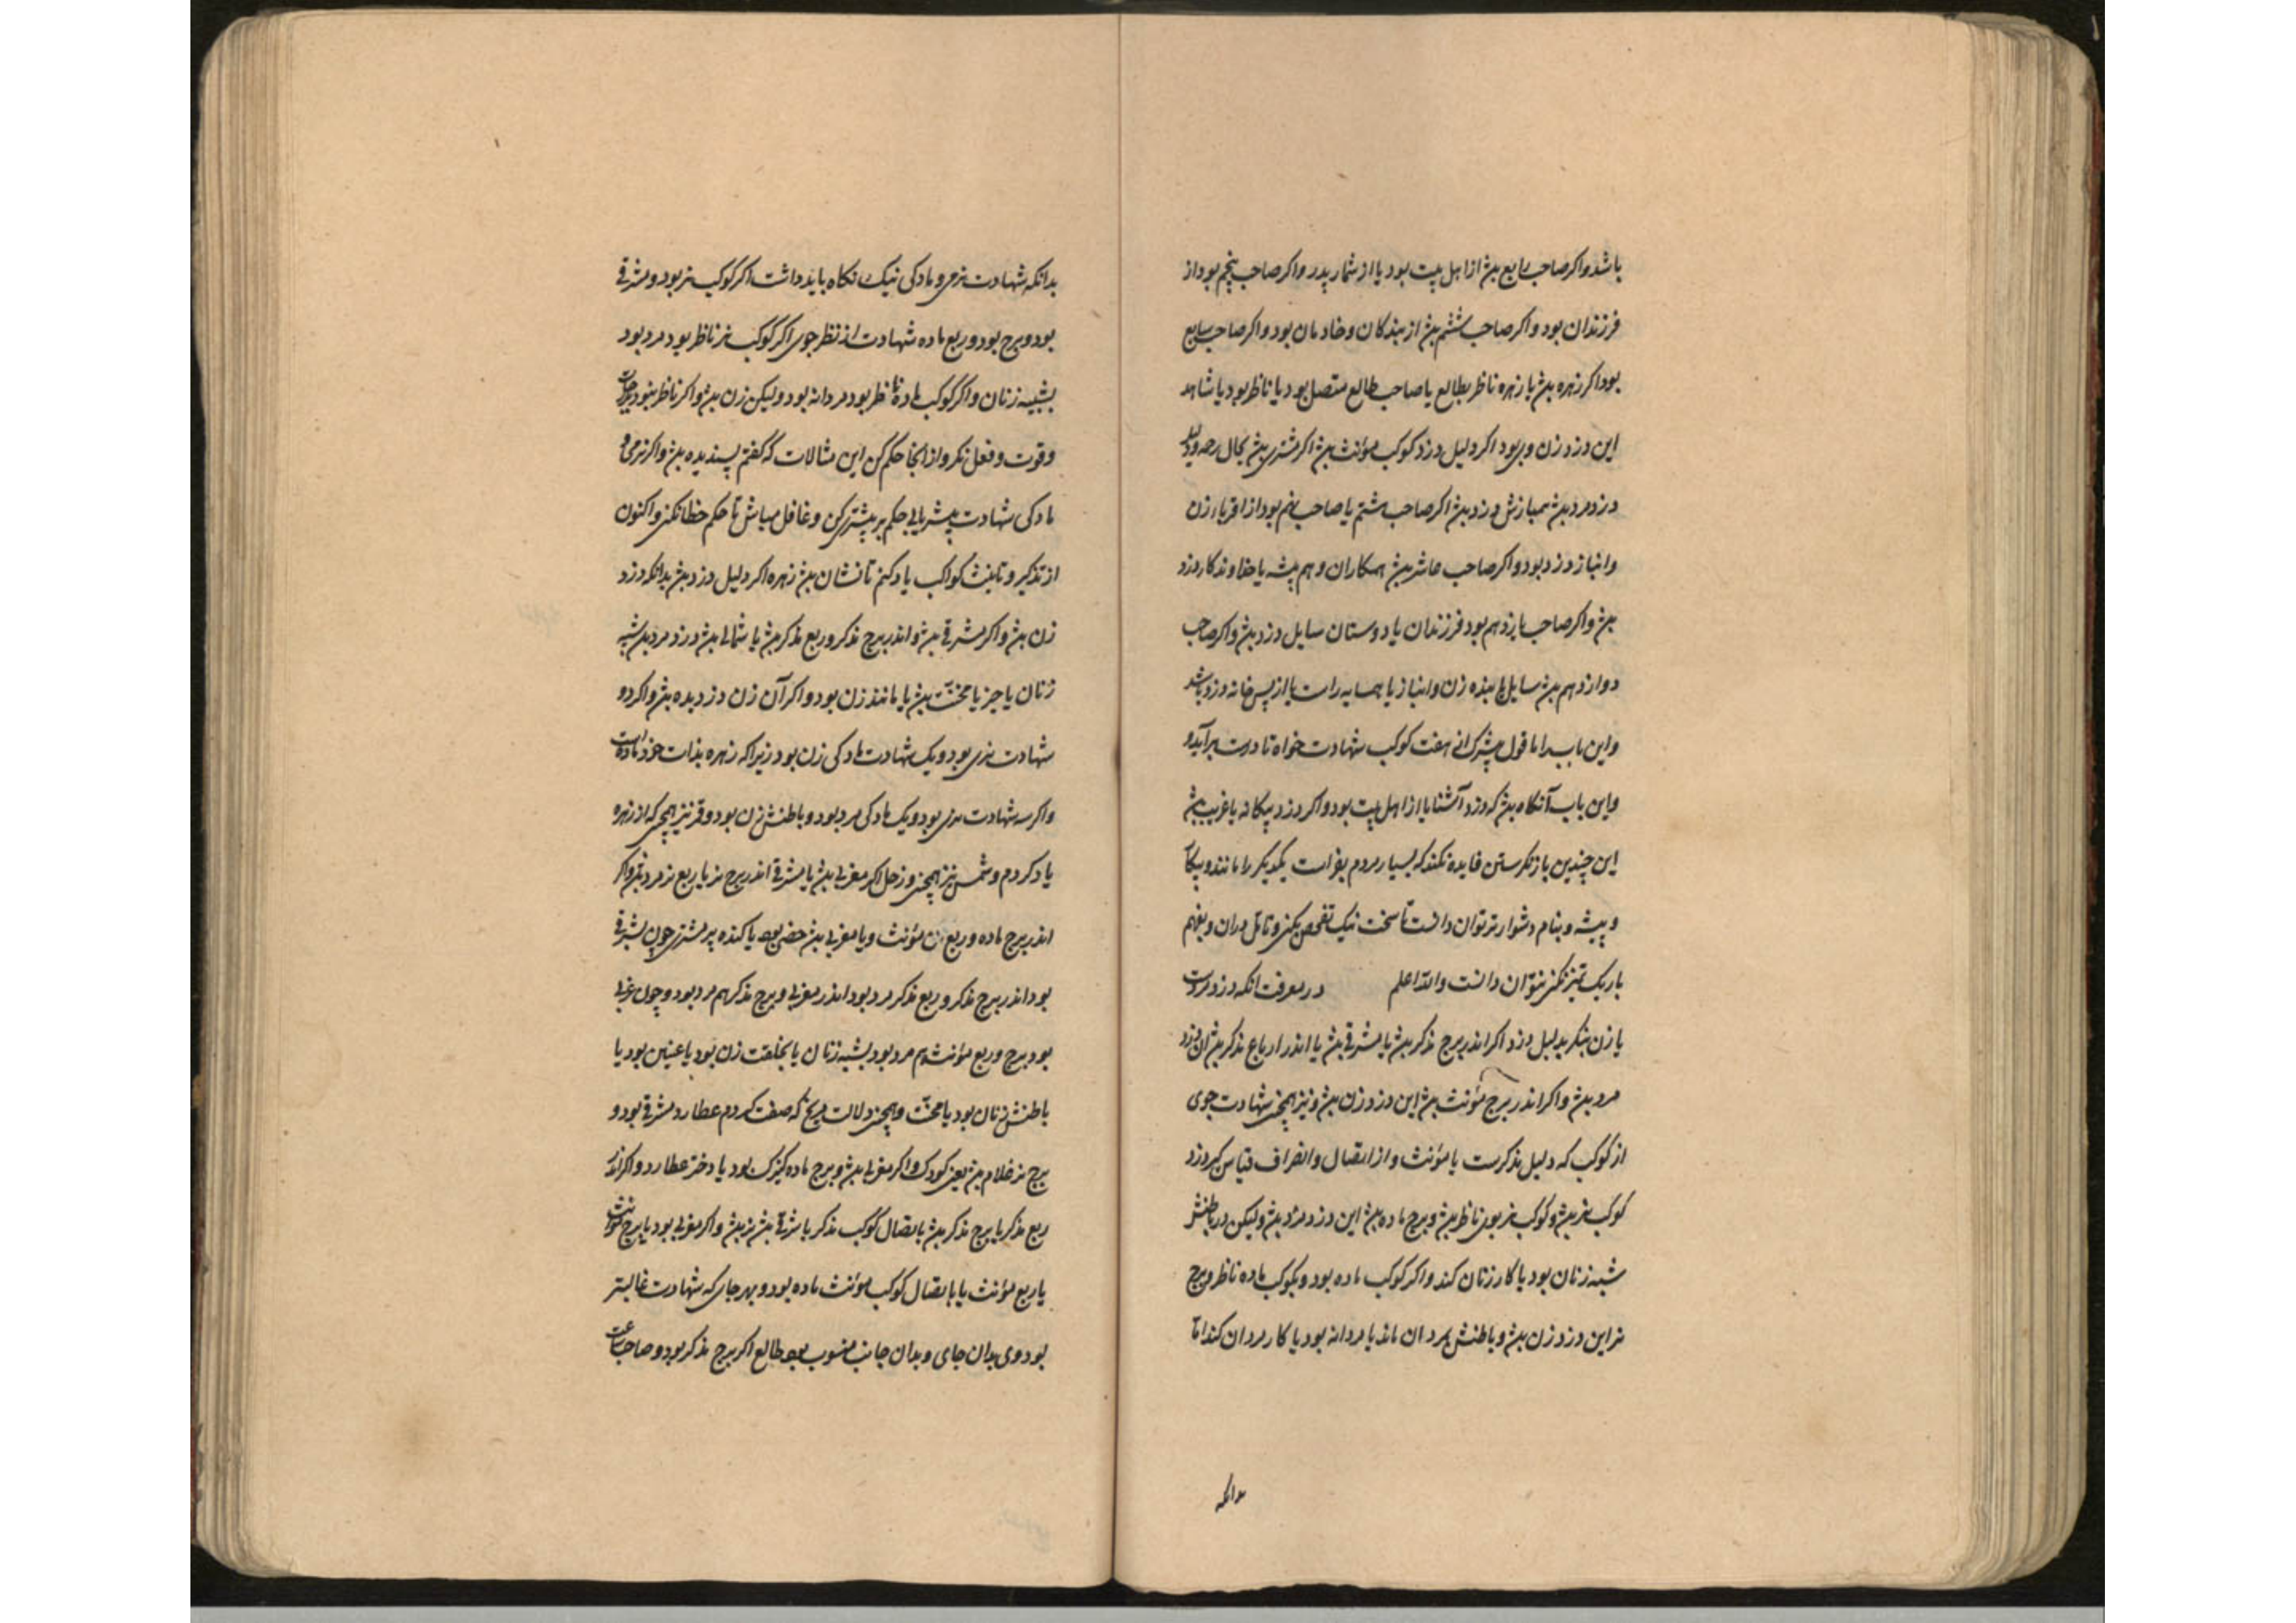 باشد واکر صاحب رابع بود از اهل بیت بود یا از شمار پدر واکر صاحب پنجم بود از
فرزندان بود واکر صاحب ششم از بندکان وخادمان بود واکر صاحب سابع
بود اکر زهره یا زهره ناظر بطالع یا صاحب طالع متصل بود یا ناظر بود یا شاهد
این دزد زن وی بود اکر دلیل دزد کوکب مؤنث اکر مشتری بحال
دزد مرد انبازش دزد اکر صاحب هشتم یا صاحب نهم بود از اقرباء زن
وانباز دزد بود واکر صاحب عاشر همکاران وهم پیشه یا خداوند کار دزد
واکر صاحب یازدهم بود فرزندان یا دوستان سایل دزد واکر صاحب
دوازدهم سایل را بنده زن وانباز یا همسایه راست یا از پس خانه دزد باشد
واین باب را با قول هفت کوکب شهادت خواه تا درست برآید و
واین باب آنکاه که دزد آشنا یا از اهل بیت بود واکر دزد بیکانه یا غریب
این چندین باز نکرستن فایده نکند که بسیار مردم یکدیکر را مانند
وپیشه وبنام دشوارتر توان دانست تا سخت نیک تفحص نکنی وتامل دران وبفهم
باریک تمیز نکنی نتوان دانست والله اعلم در معرفت انکه دزد مردست
یا زن بنکر بدلیل دزد اکر اندر برج مذکر یا مشرقی یا اندر ارباع مذکر ان دزد
مرد واکر اندر برج مؤنث این دزد زن ونیز همچنین شهادت جوی
از کوکب که دلیل مذکرست یا مؤنث واز اتصال وانصراف قیاس کیر دزد
کوکب نر وکوکب نر بوی ناظر وبرج ماده این دزد مرد ولیکن در باطنش
شبه زنان بود یا کار زنان کند واکر کوکب ماده بود وبکوکب ماده ناظر وبرج
نر این دزد زن وباطنش بمردان ماند یا مردانه بود یا کار مردان کند اما
بدانکه
بدانکه شهادت نری ومادکی نیک نکاه باید داشت اکر کوکب نر بود ومشرقی
بود وبرج بود وربع ماده شهادت از نظر جوی اکر کوکب نر ناظر بود مرد بود
بشبیه زنان واکر کوکب ماده ناظر بود مردانه بود ولیکن زن واکر ناظر نبود
وقوت وفعل نکر واز انجا حکم کن این مثالات که کفتم پسندیده واکر نری و
مادکی شهادت بیشتر یابی حکم بر بیشتر کن وغافل مباش تا حکم خطا نکنی واکنون
از تذکیر وتانیث کواکب یاد کنم تا نشان زهره اکر دلیل دزد بدانکه دزد
زن واکر مشرقی واندر برج مذکر وربع مذکر یا شمالی دزد مرد شبه
زنان یا حیز یا مخنث یا مانند زن بود واکر آن زن دزدیده واکر دو
شهادت نری بود ویک شهادت مادکی زن بود زیراکه زهره بذات خود ماده است
واکر سه شهادت نری بود ویک مادکی مرد بود وباطنش زن بود وقمر نیز همچنین که از زهره
یاد کردم وشمس نیز همچنین وزحل اکر مغربی یا مشرقی اندر برج نر یا ربع نر مرد واکر
اندر برج ماده وربع مؤنث ویا مغربی خصی بود یا کنده پیر مشتری چون مشرقی
بود اندر برج مذکر وربع مذکر مرد بود اندر مغربی وبرج مذکر هم مرد بود وچون غربی
بود برج وربع مؤنث هم مرد بود بشبه زنان یا بخلقت زن بود یا عنین بود یا
باطنش زنان بود یا مخنث وهمچنین دلالت مریخ که صفت کردم عطارد مشرقی بود و
برج نر غلام یعنی کودک واکر مغربی وبرج ماده کنیزک بود یا دختر عطارد واکر اندر
ربع مذکر یا برج مذکر یا اتصال کوکب مذکر یا شرقی نر واکر مغربی بود یا برج مؤنث
یا ربع مؤنث یا باتصال کوکب مؤنث ماده بود وبهر جای که شهادت غالبتر
بود وی بدان جای وبدان جانب منسوب بود طالع اکر برج مذکر بود وصاحب ساعت